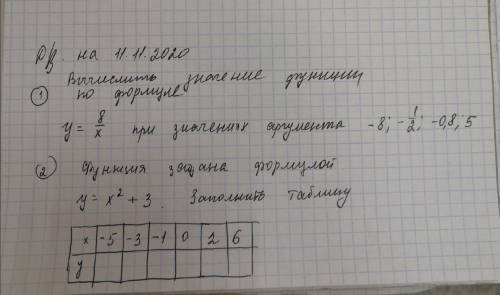 Д/з. на 11.11.2020
① Вычислить значение функции
по формуле
y = 8/x при значениях аргумента -8; -1/2; -0,8; 5
② Функция задана формулой
y = x² + 3. Заполнить таблицу
x -5 -3 -1 0 2 6
y